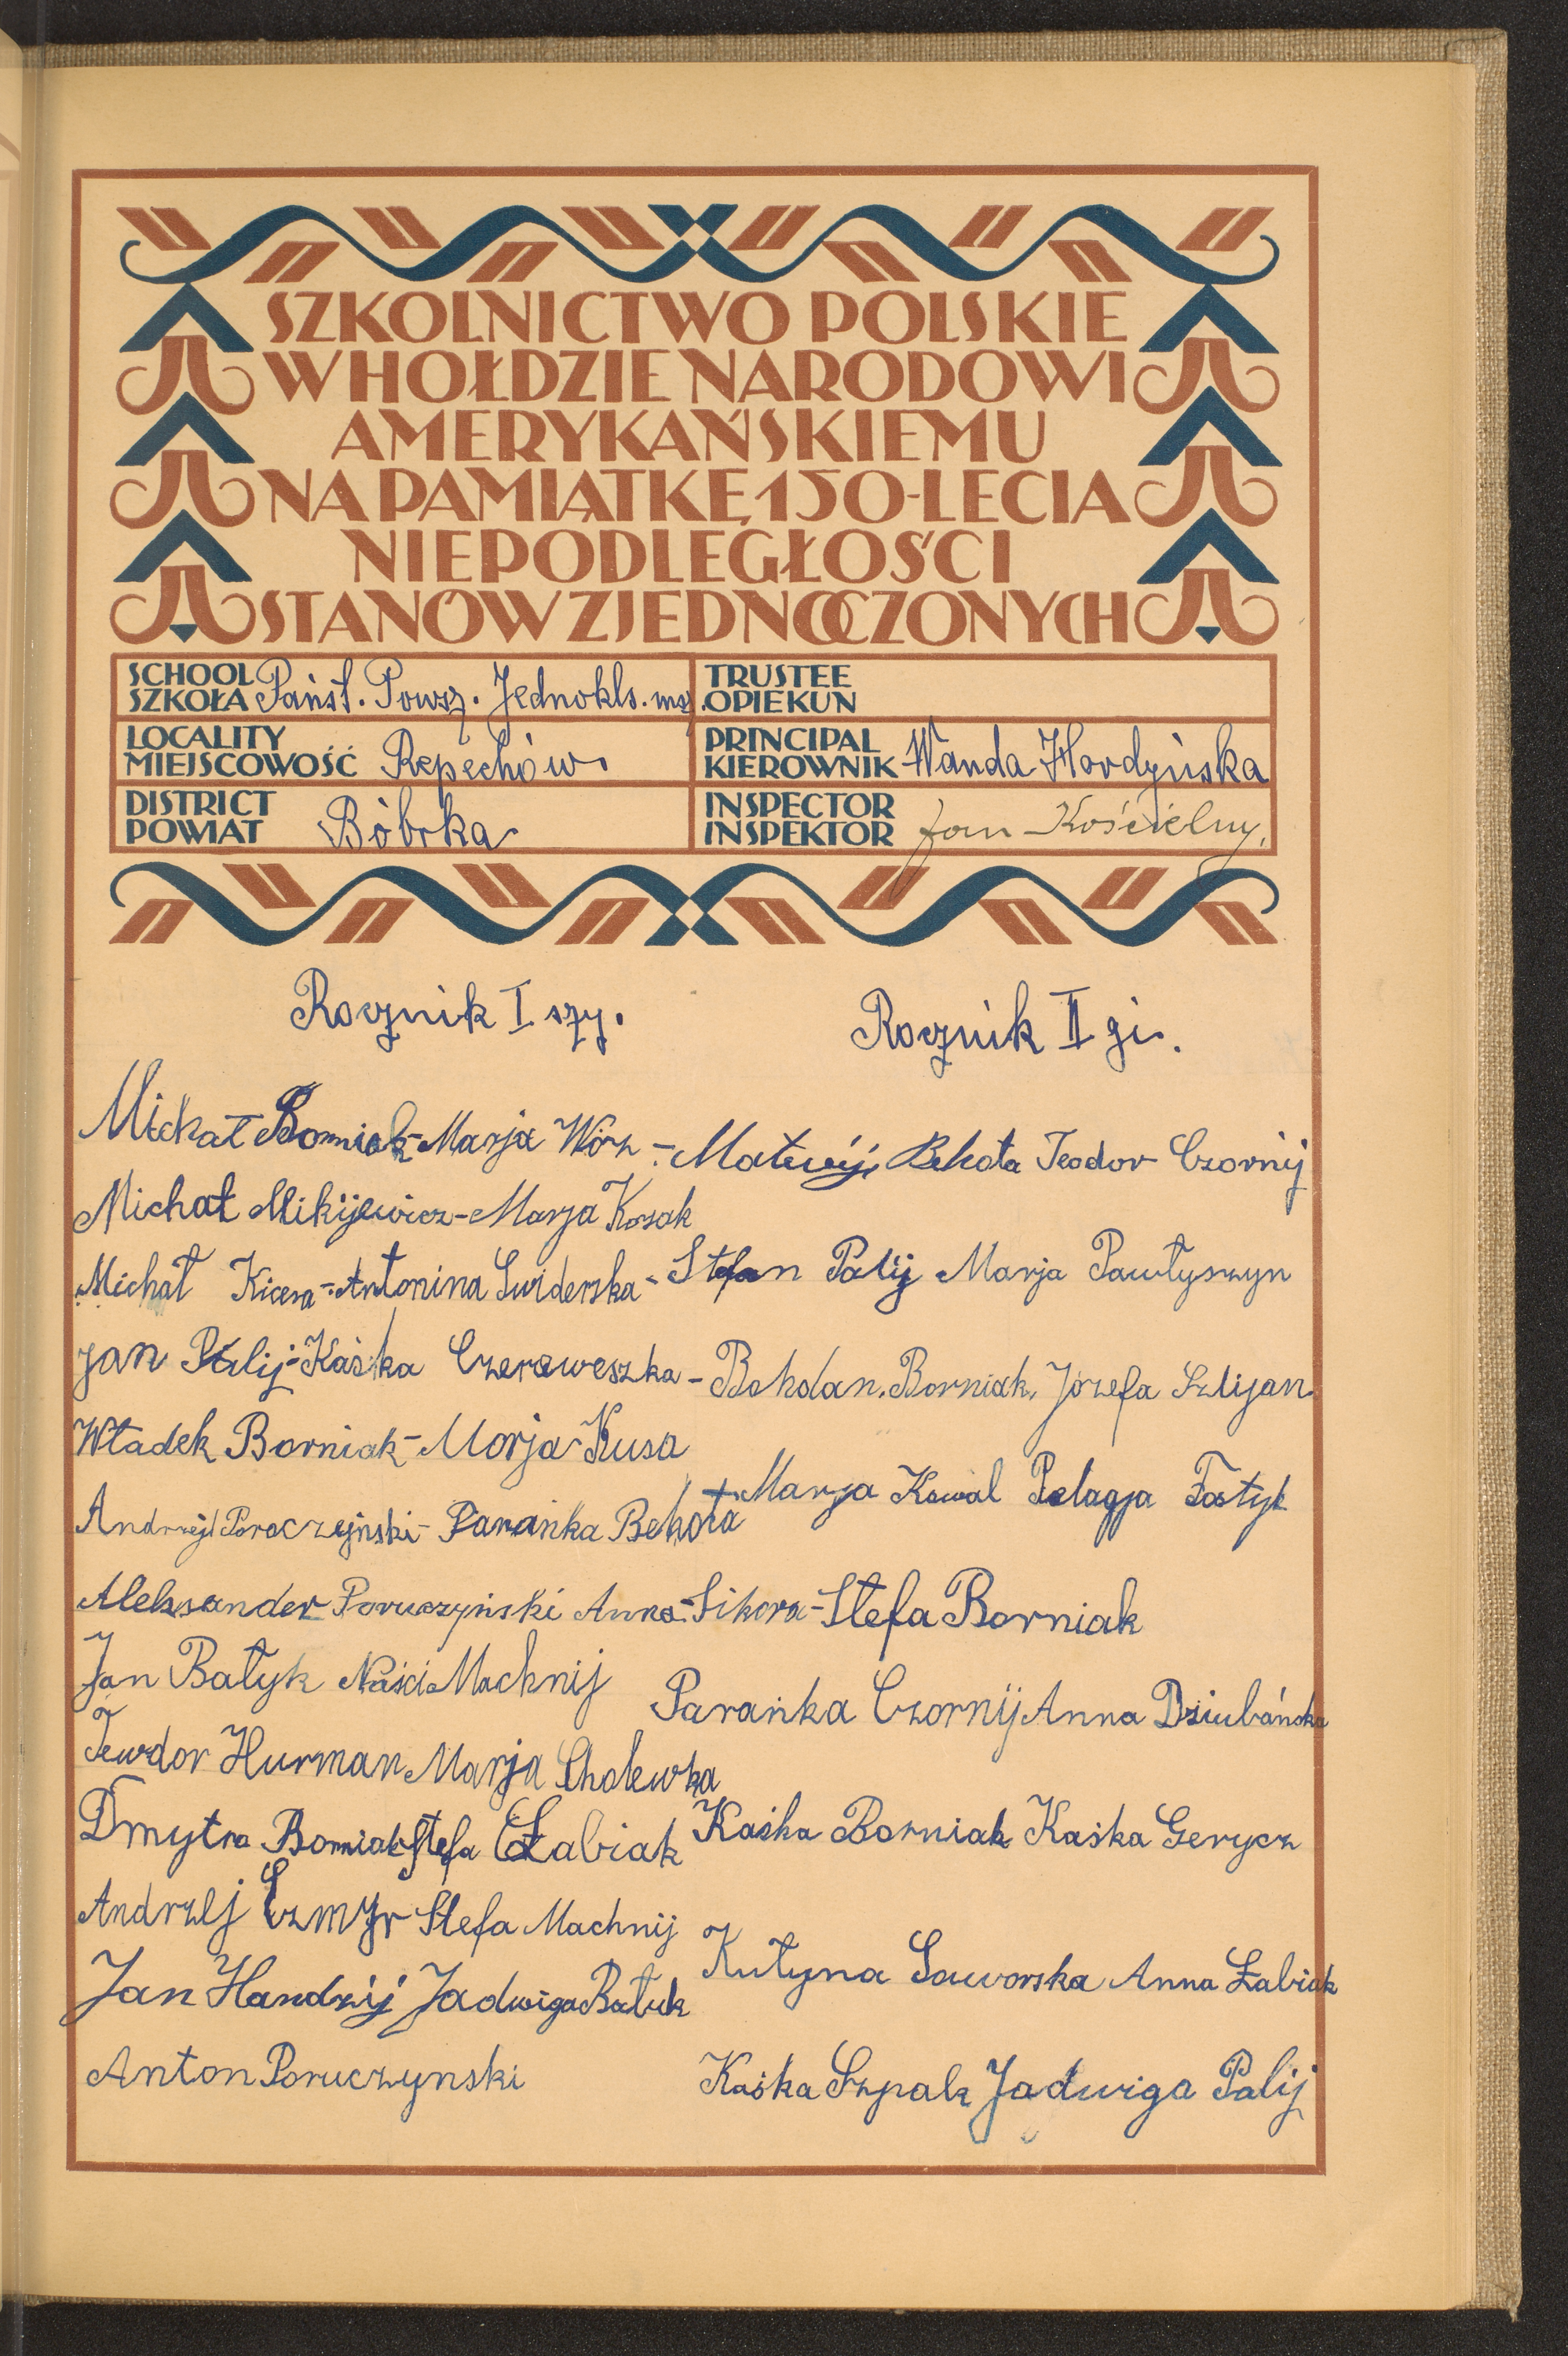 SZKOLNICTWO POLSKIE
W HOŁDZIE NARODOWI
AMERYKAŃSKIEMU
NA PAMIĄTKĘ 150-LECIA
NIEPODLEGŁOŚCI
STANÓW ZJEDNOCZONYCH
SCHOOL
SZKOŁA Państ. Powsz. Jednokls. msz.
TRUSTEE
OPIEKUN
LOCALITY
MIEJSCOWOŚĆ Repechów.
PRINCIPAL
KIEROWNIK Wanda Hordyńska
DISTRICT
POWIAT Bóbrka
INSPECTOR
INSPEKTOR Jan Kościelny.
Rocznik I szy.
Michał Borniak - Marja Worz -
Michał Mikijewicz - Marja Kozak
Michał Kicera - Antonina Swiderska -
Jan Palij - Kaśka Czereweszka -
Władek Borniak - Morja Kusa
Andrzej Poroczejnski - Parańka Behota
Aleksander Poruczyński Anna Sikora -
Jan Batyk Naścia Machnij
Tewdor Hurman Marja Cholewka
Dmytro Borniak Stefa Łabiak
Andrzej Czmyr Stefa Machnij
Jan Handzij Jadwiga Batuk
Anton Poruczynski
Rocznik II gi.
Matwij Behota Teodor Czornij
Stefan Palij Marja Pawłyszyn
Bohdan. Borniak. Józefa Szlijan.
Marya Kowal Pelagja Fostyk
Stefa Borniak
Parańka Czornij Anna Dziubańska
Kaśka Borniak Kaśka Gerycz
Katyna Saworska Anna Łabiak
Kaśka Szpak Jadwiga Palij